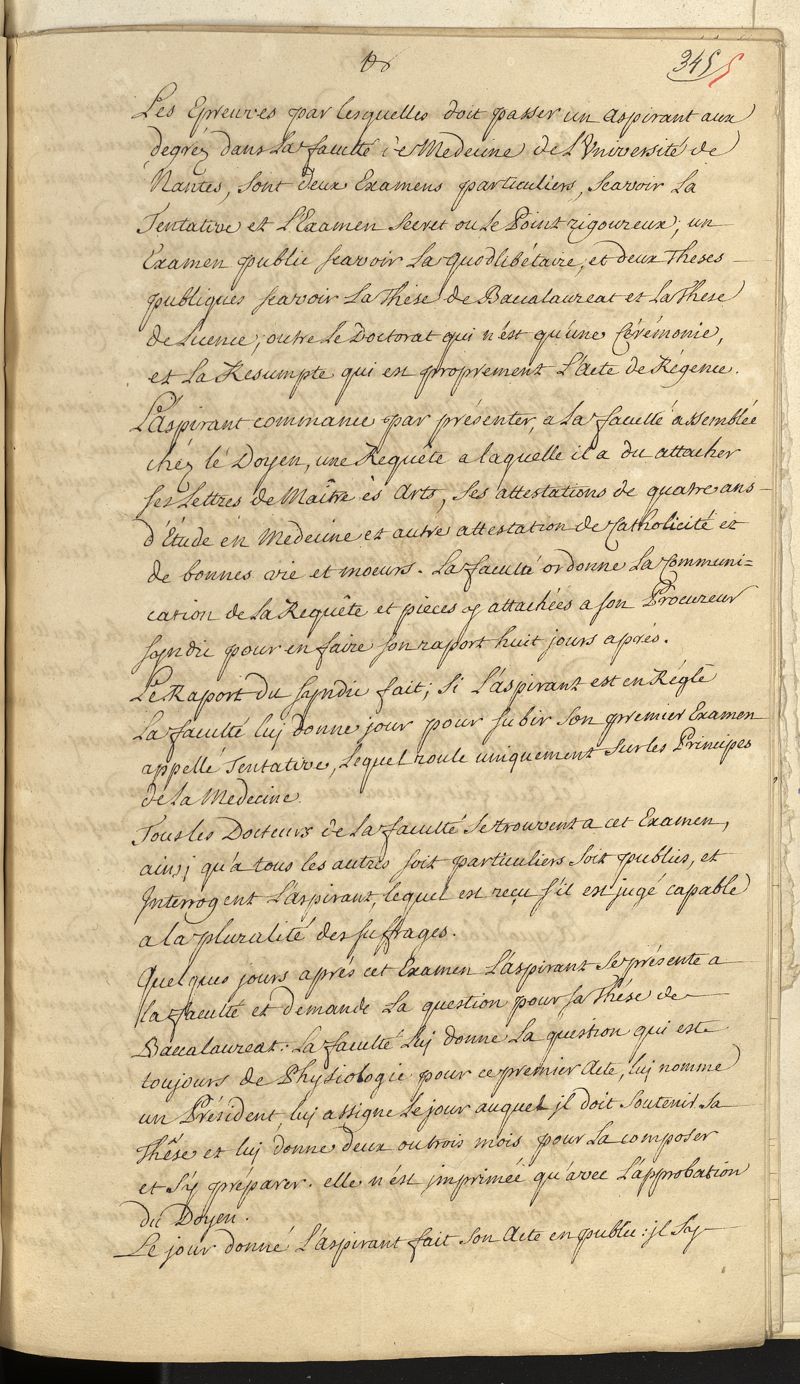 345
Les Epreuves par lesquelles doit passer un aspirant aux
degréz dans la faculté de Medecine de l'Université de
Nantes, sont deux Examens particuliers, scavoir la
Tentative et l'Examen Secret ou le Point rigoureux; un
Examen public scavoir la quodlibétaire, et deux Theses
publiques scavoir la Thése de Baccalaureat et la These
de Licence; outre le Doctorat qui n'est qu'une Cérémonie,
et la Resumpte qui est proprement l'Acte de Régence.
L'aspirant commance par présenter, a la faculté assemblée
chéz le Doyen, une Requête a laquelle il a du attacher
ses Lettres de Maître ès Arts, ses attestations de quatre ans
d'Étude en Medecine et autre attestation de Catholicité et
de bonnes vie et moeurs. La faculté ordonne la Communi=
cation de la Requête et pieces y attachées a son Procureur
syndic pour en faire son raport huit jours aprés.
Le Raport du syndic fait; si l'aspirant est en Régle
la faculté luj donne jour pour subir son premier Examen
appellé Tentative, lequel roule uniquement sur les Principes
de la Medecine.
Tous les Docteurs de la faculté se trouvent a cet Examen,
ainsj qu'a tous les autres soit particuliers soit publics, et
Interrogent l'aspirant, lequel est reçu s'il est jugé capable
a la pluralité des suffrages.
Quelques jours aprés cet Examen l'aspirant se présente a
la faculté et demande la question pour sa Thése de
Baccalaureat: la faculté luj donne la question qui est
toujours de Physiologie pour ce premier Acte, luj nomme
un Président, luj assigne le jour auquel jl doit soutenir sa
Thése et luj donne deux ou trois mois pour la composer
et s'y préparer. elle n'est jmprimeé qu'avec l'approbation
du Doyen.
Le jour donné l'aspirant fait son Acte en public: jl s'y